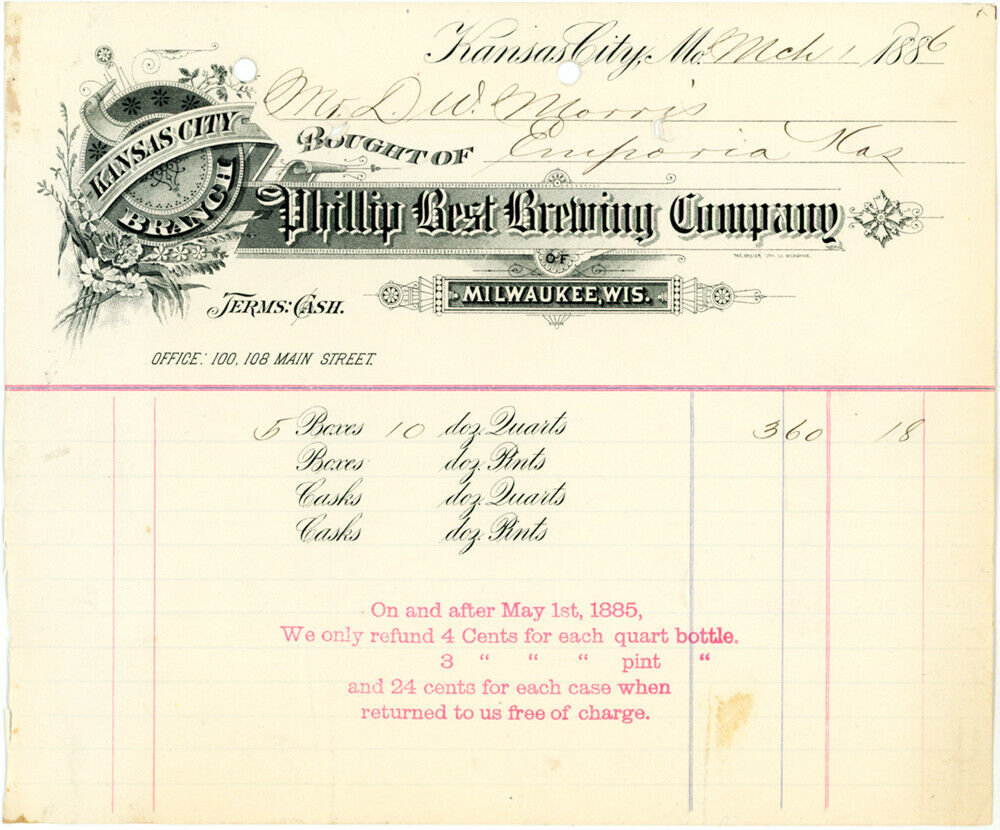 Kansas City, Mo. Mch 1 1886
Mr. D. W. Morris
BOUGHT OF Emporia Kas
KANSAS CITY
BRANCH
Phillip Best Brewing Company
OF
MILWAUKEE, WIS.
TERMS: CASH.
OFFICE: 100, 108 MAIN STREET.
5 Boxes 10 doz. Quarts 360 18
Boxes doz. Pints
Casks doz. Quarts
Casks doz. Pints
On and after May 1st, 1885,
We only refund 4 Cents for each quart bottle.
3 “ “ “ pint “
and 24 cents for each case when
returned to us free of charge.